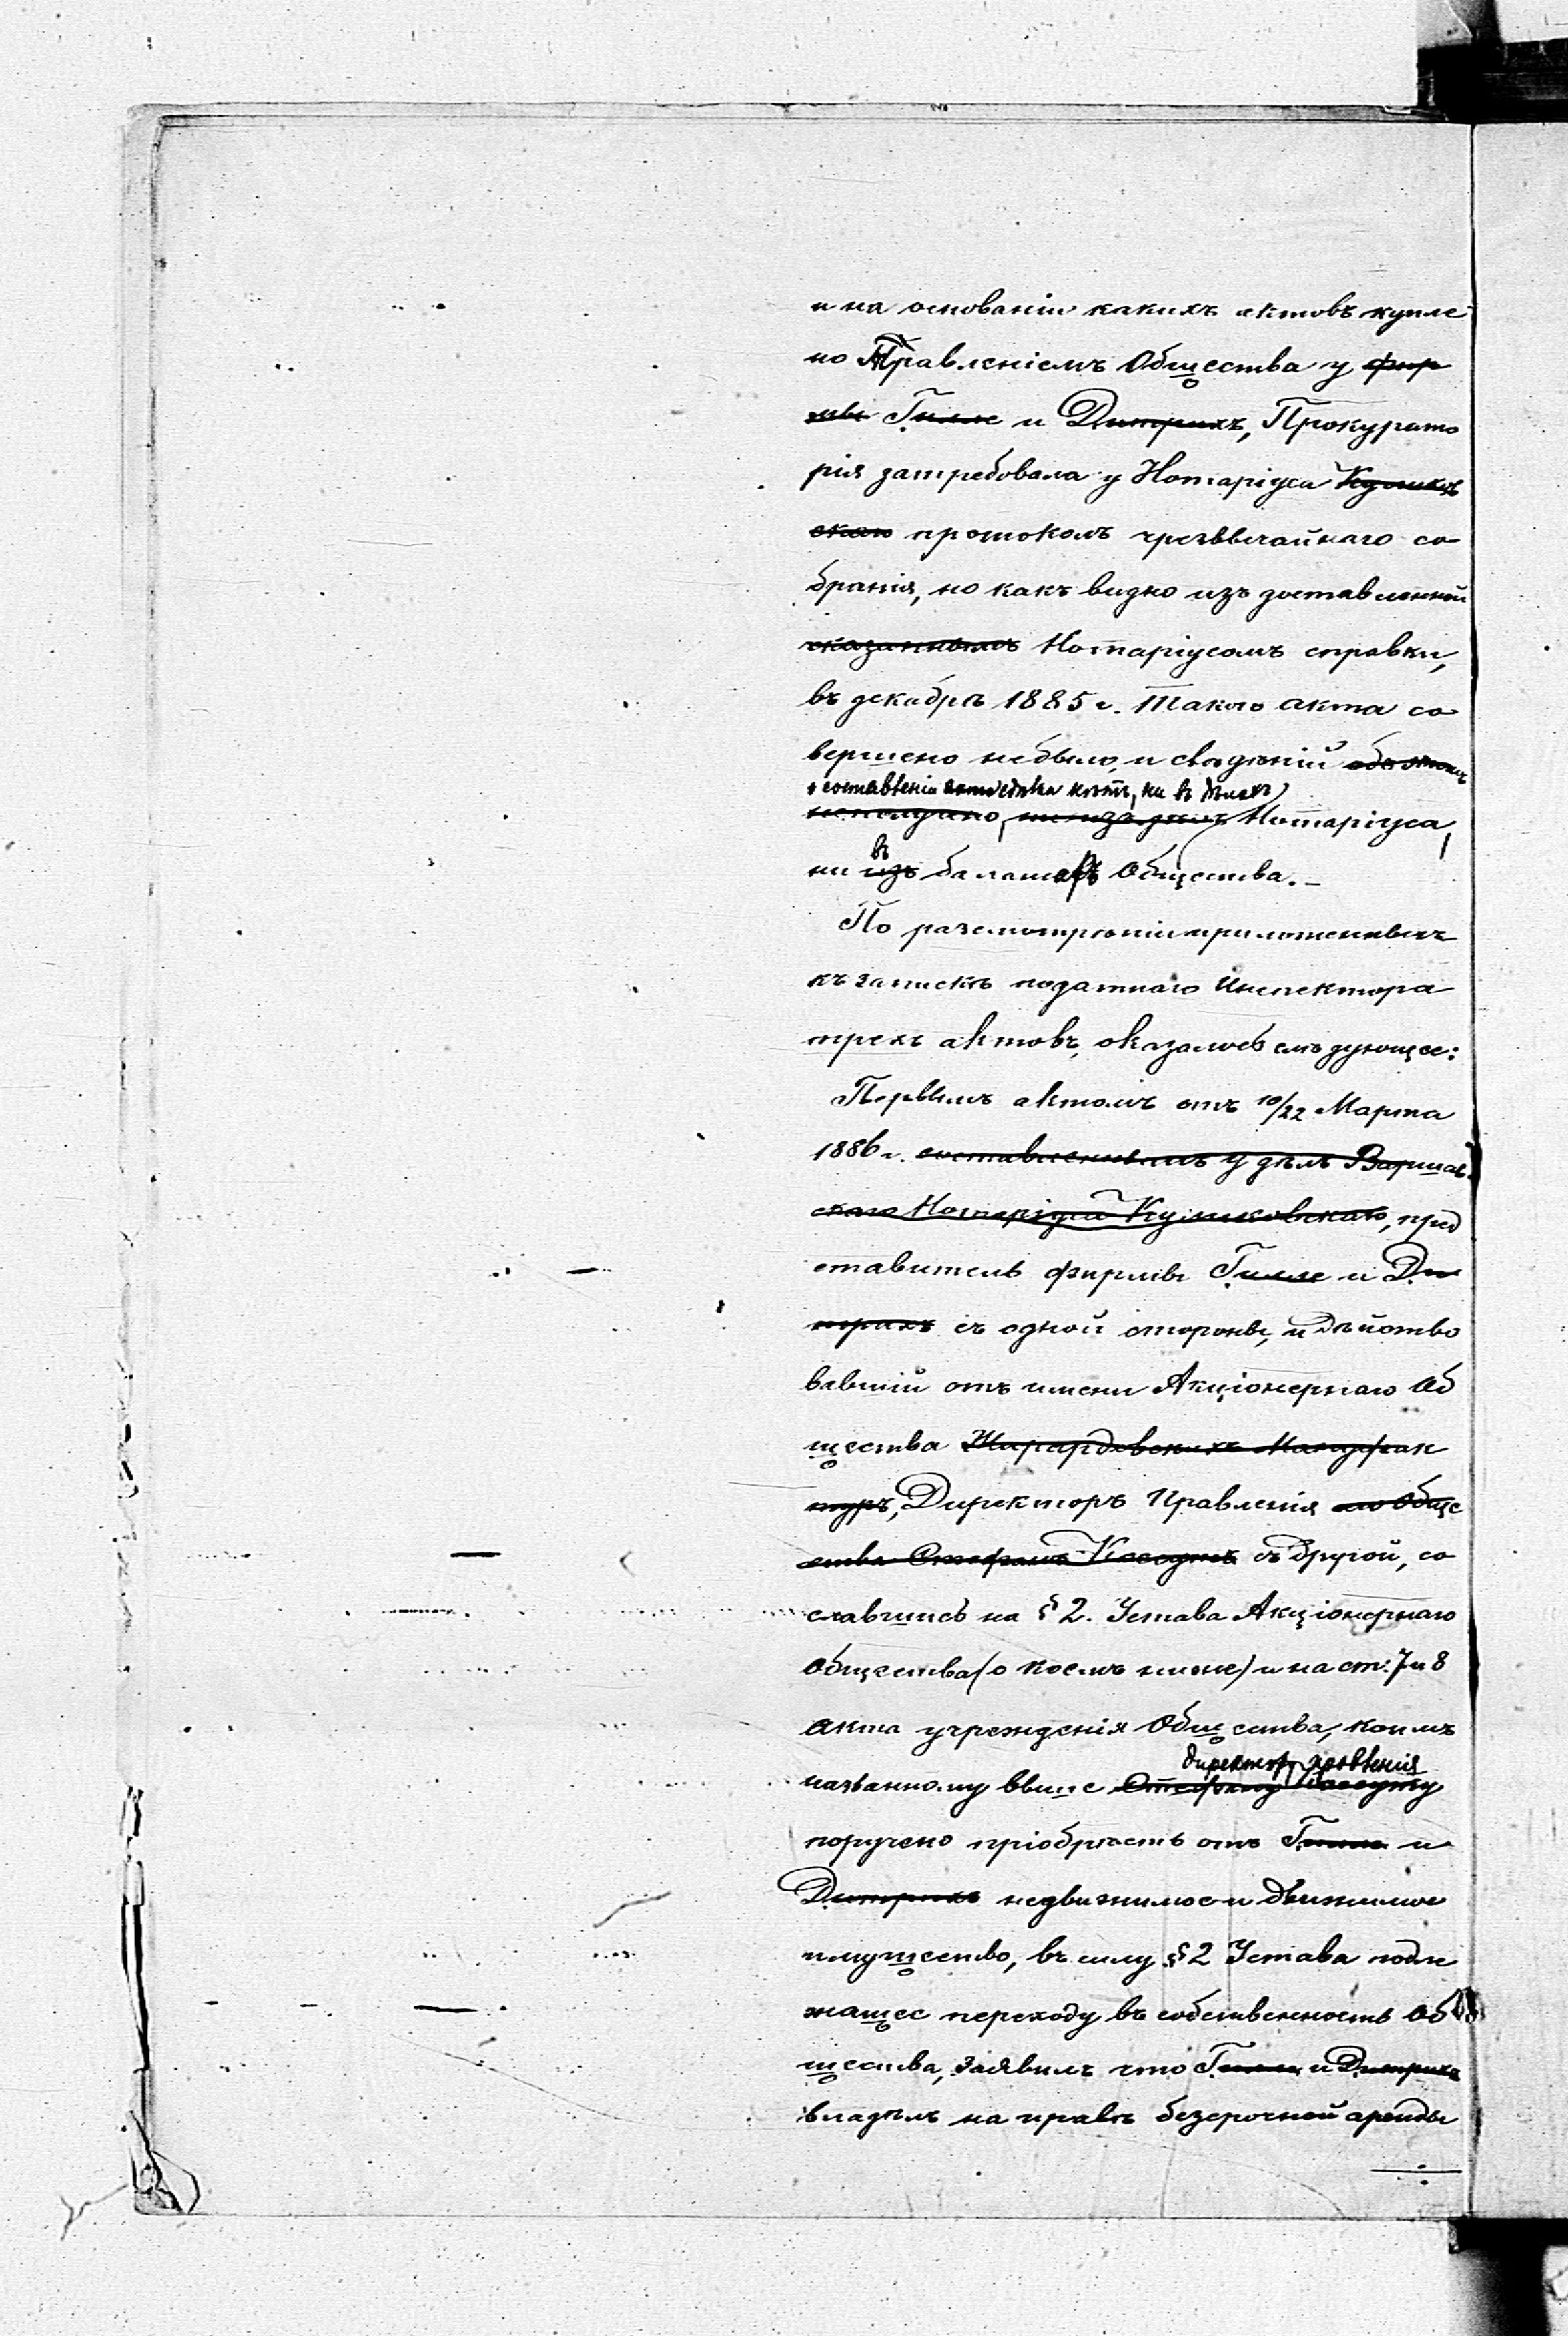 и на основаніи какихъ актовъ купле
но Правленіемъ Общества у фир
мы Гилле и Дитрихъ, Прокурато
рія затребовала у Нотаріуса Куликов
скаго протоколъ чрезвычайнаго со
бранія, но какъ видно изъ доставленной
сказаннымъ Нотаріусомъ справки,
въ декабрѣ 1885 г. такого акта со
вершено не было, и свѣдѣній объ этомъ
о составленіи нѣтъ, ни въ дѣлахъ
ни изъ дѣлъ Нотаріуса,
въ
ни изъ балансахъ Общества.
По разсмотрѣніи приложенныхъ
къ запискѣ податнаго Инспектора
трехъ актовъ, оказалось слѣдующее:
Первымъ актомъ отъ 10/22 Марта
1886 г. составленнымъ у дѣлъ Варшав
скаго Нотаріуса Куликовскаго, пред
ставитель фирмы Гилле и Ди
трихъ съ одной стороны, и дѣйство
вавшій отъ имени Акціонернаго Об
щества Жирардовскихъ Мануфак
туръ, Директоръ Правленія его Обще
ства Стефанъ Коссутъ съ другой, со
славшись на § 2. Устава Акціонернаго
Общества (о коемъ ниже) и на ст. 7 и 8
акта учрежденія Общества, коимъ
директору правленія
названному выше Стефану Коссуту
поручено пріобрѣсть отъ Гилле и
Дитрихъ недвижимое и движимое
имущество, въ силу § 2 Устава подле
жащее переходу въ собственность Об
щества, заявилъ что Гилле и Дитрихъ
владѣлъ на правѣ безсрочной аренды